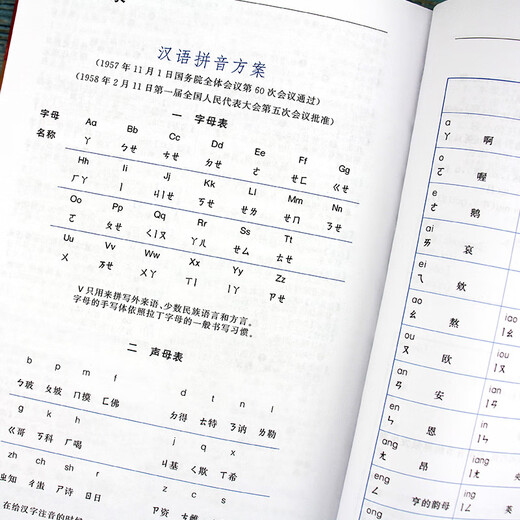 汉语拼音方案
(1957年11月1日国务院全体会议第60次会议通过)
(1958年2月11日第一届全国人民代表大会第五次会议批准)
一 字母表
字母 Aa Bb Cc Dd Ee Ff Gg
名称 ㄚ ㄅㄝ ㄘㄝ ㄉㄝ ㄜ ㄝㄈ ㄍㄝ
Hh Ii Jj Kk Ll Mm Nn
ㄏㄚ ㄧ ㄐㄧㄝ ㄎㄝ ㄝㄌ ㄝㄇ ㄋㄝ
Oo Pp Qq Rr Ss Tt
ㄛ ㄆㄝ ㄑㄧㄡ ㄚㄦ ㄝㄙ ㄊㄝ
Uu Vv Ww Xx Yy Zz
ㄨ ㄪㄝ ㄨㄚ ㄒㄧ ㄧㄚ ㄗㄝ
V只用来拼写外来语、少数民族语言和方言。
字母的手写体依照拉丁字母的一般书写习惯。
二 声母表
b p m f d t n l
ㄅ玻 ㄆ坡 ㄇ摸 ㄈ佛 ㄉ得 ㄊ特 ㄋ讷 ㄌ勒
g k h j q x
ㄍ哥 ㄎ科 ㄏ喝 ㄐ基 ㄑ欺 ㄒ希
zh ch sh r z c s
知 ㄔ蚩 ㄕ诗 ㄖ日 ㄗ资
在给汉字注音的时候
a
ㄚ 啊
o
ㄛ 喔
e
ㄜ 鹅
ai
ㄞ 哀
ei
ㄟ 欸
ao iao
ㄠ 熬 ㄧㄠ
ou iou
ㄡ 欧 ㄧㄡ
an ian
ㄢ 安 ㄧㄢ
en in
ㄣ 恩 ㄧㄣ
ang iang
ㄤ 昂 ㄧㄤ
eng ing
ㄥ 亨的韵母 ㄧㄥ